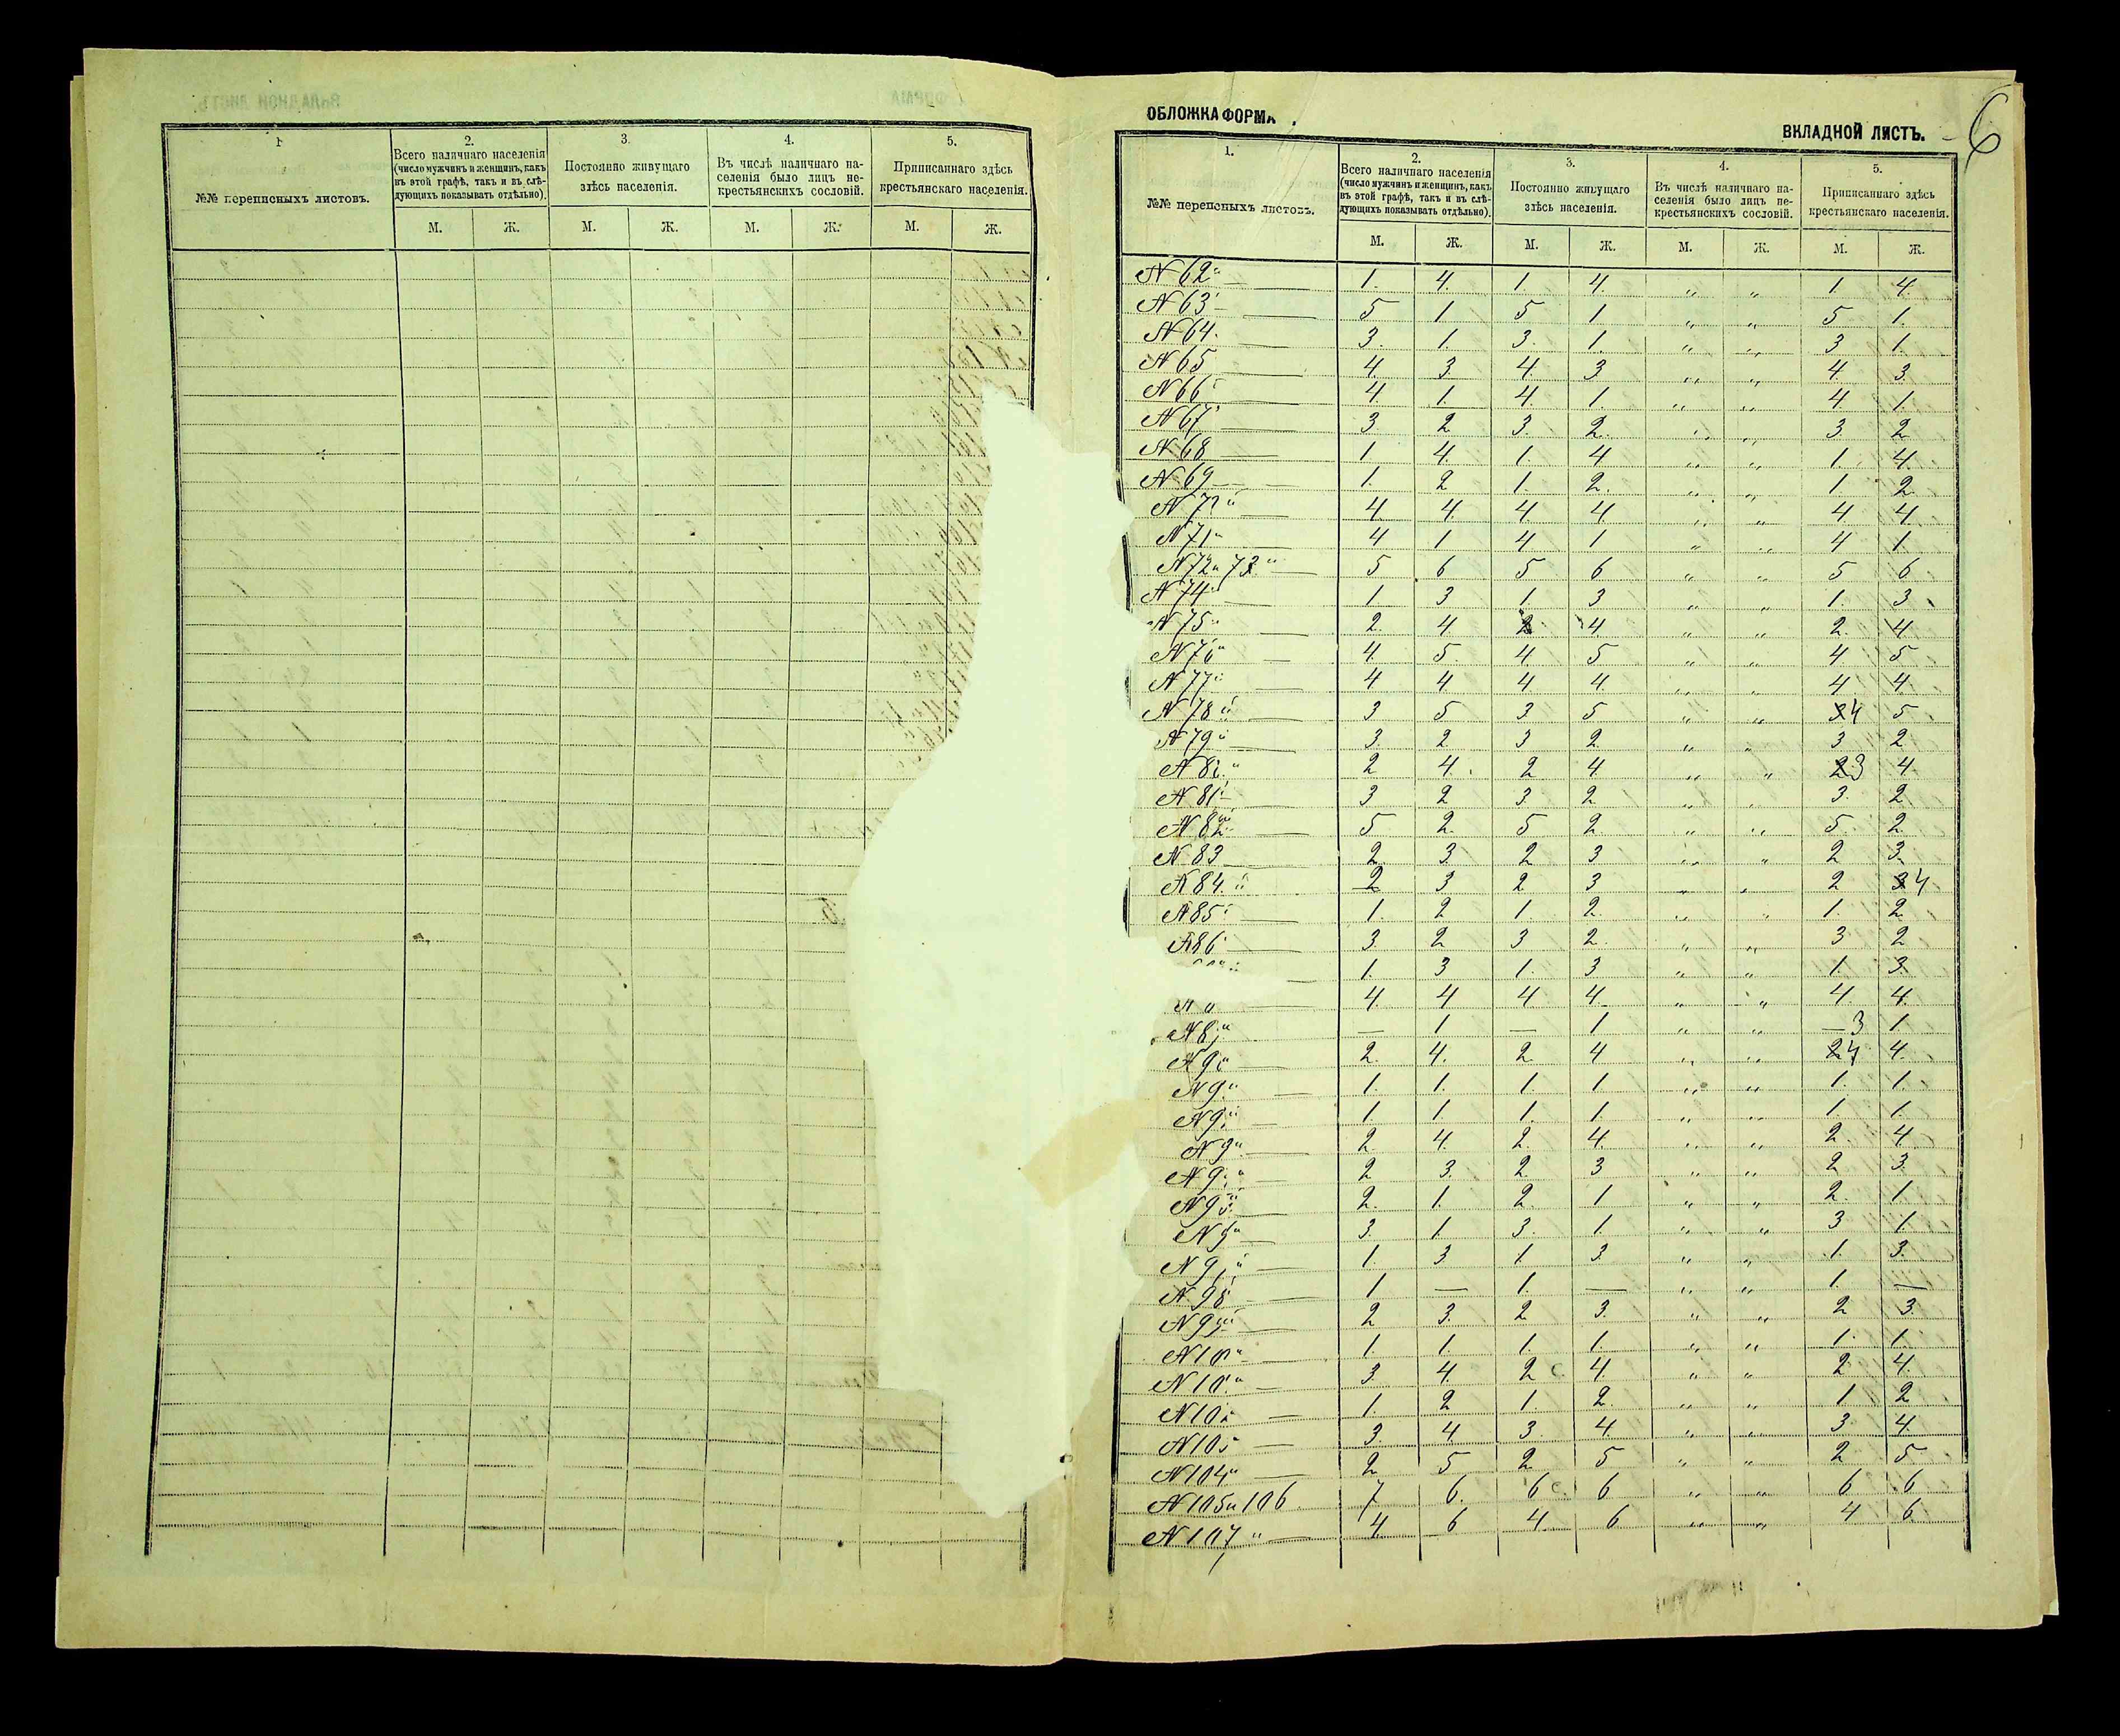 1.
2.
3.
4.
5.
№№ переписныхъ листовъ.
Всего наличнаго населенія (число мужчинъ и женщинъ, какъ въ этой графѣ, такъ и въ слѣдующихъ показывать отдѣльно).
Постоянно живущаго здѣсь населенія.
Въ числѣ наличнаго населенія было лицъ некрестьянскихъ сословій.
Приписаннаго здѣсь крестьянскаго населенія.
М. Ж. М. Ж. М. Ж. М. Ж.
ОБЛОЖКА ФОРМА
ВКЛАДНОЙ ЛИСТЪ. 6
1.
2.
3.
4.
5.
№№ переписныхъ листовъ.
Всего наличнаго населенія
(число мужчинъ и женщинъ, какъ
въ этой графѣ, такъ и въ слѣ-
дующихъ показывать отдѣльно).
Постоянно живущаго
здѣсь населенія.
Въ числѣ наличнаго на-
селенія было лицъ не-
крестьянскихъ сословій.
Приписаннаго здѣсь
крестьянскаго населенія.
М. Ж. М. Ж. М. Ж. М. Ж.
N 62 " 1. 4. 1. 4. " " 1. 4.
N 63 5 1 5 1 " " 5 1.
N 64. 3. 1. 3. 1. " " 3 1.
N 65 4. 3. 4. 3 " " 4. 3.
N 66 4 1. 4. 1. " " 4. 1.
N 67 3 2 3. 2. " " 3 2
N 68 1 4. 1. 4 " " 1. 4.
N 69 1. 2 1. 2. " " 1. 2
N 7 " 4. 4. 4. 4. " " 4 4.
N 71 " 4 1 4 1 " " 4 1.
N 72 и 73 " 5 6 5 6 " " 5 6
N 74 " 1 3 1. 3 " " 1. 3
N 75 " 2. 4 2 4. " " 2. 4
N 76 " 4 5. 4. 5 " " 4 5
N 77 " 4 4 4 4. " " 4. 4.
N 78 " 3 5 3 5 " " 4 5
N 79 " 3. 2 3 2 " " 3 2.
N 8 " 2 4. 2 4. " " 3 4.
N 81 " 3 2 3. 2 " " 3. 2
N 82 " 5 2. 5 2 " " 5. 2
N 83 2 3. 2 3 " " 2 3.
N 84. " 2 3 2 3 " " 2 4
N 85 " 1. 2 1. 2. " " 1. 2
N 86 3. 2 3 2. " " 3 2
1. 3 1. 3 " " 1. 3.
4. 4 4 4. " " 4. 4.
N 8 " — 1 — 1 " " 3 1.
N 9 " 2. 4. 2 4 " " 4 4.
N 9 " 1. 1. 1. 1 " " 1. 1.
N 9 " 1. 1. 1. 1. " " 1. 1.
N 9 " 2 4. 2. 4. " " 2. 4
N 9 " 2 3. 2 3 " " 2 3.
N 95 " 2. 1. 2. 1 " " 2. 1
N 9 " 3. 1 3. 1 " " 3 1.
N 9 " 1. 3 1 3. " " 1. 3.
N 98 1 — 1. — " " 1. —
N 99 " 2 3. 2 3. " " 2 3.
N 10 " 1. 1. 1. 1. " " 1. 1.
N 10 " 3. 4 2 с. 4. " " 2 4.
N 102 1. 2 1 2. " " 1 2
N 10 3. 4. 3. 4. " " 3. 4.
N 104 " 2 5 2 5 " " 2 5
N 105 и 106 7 6. 6 с. 6 " " 6 6
N 107 " 4. 6 4. 6 " " 4 6